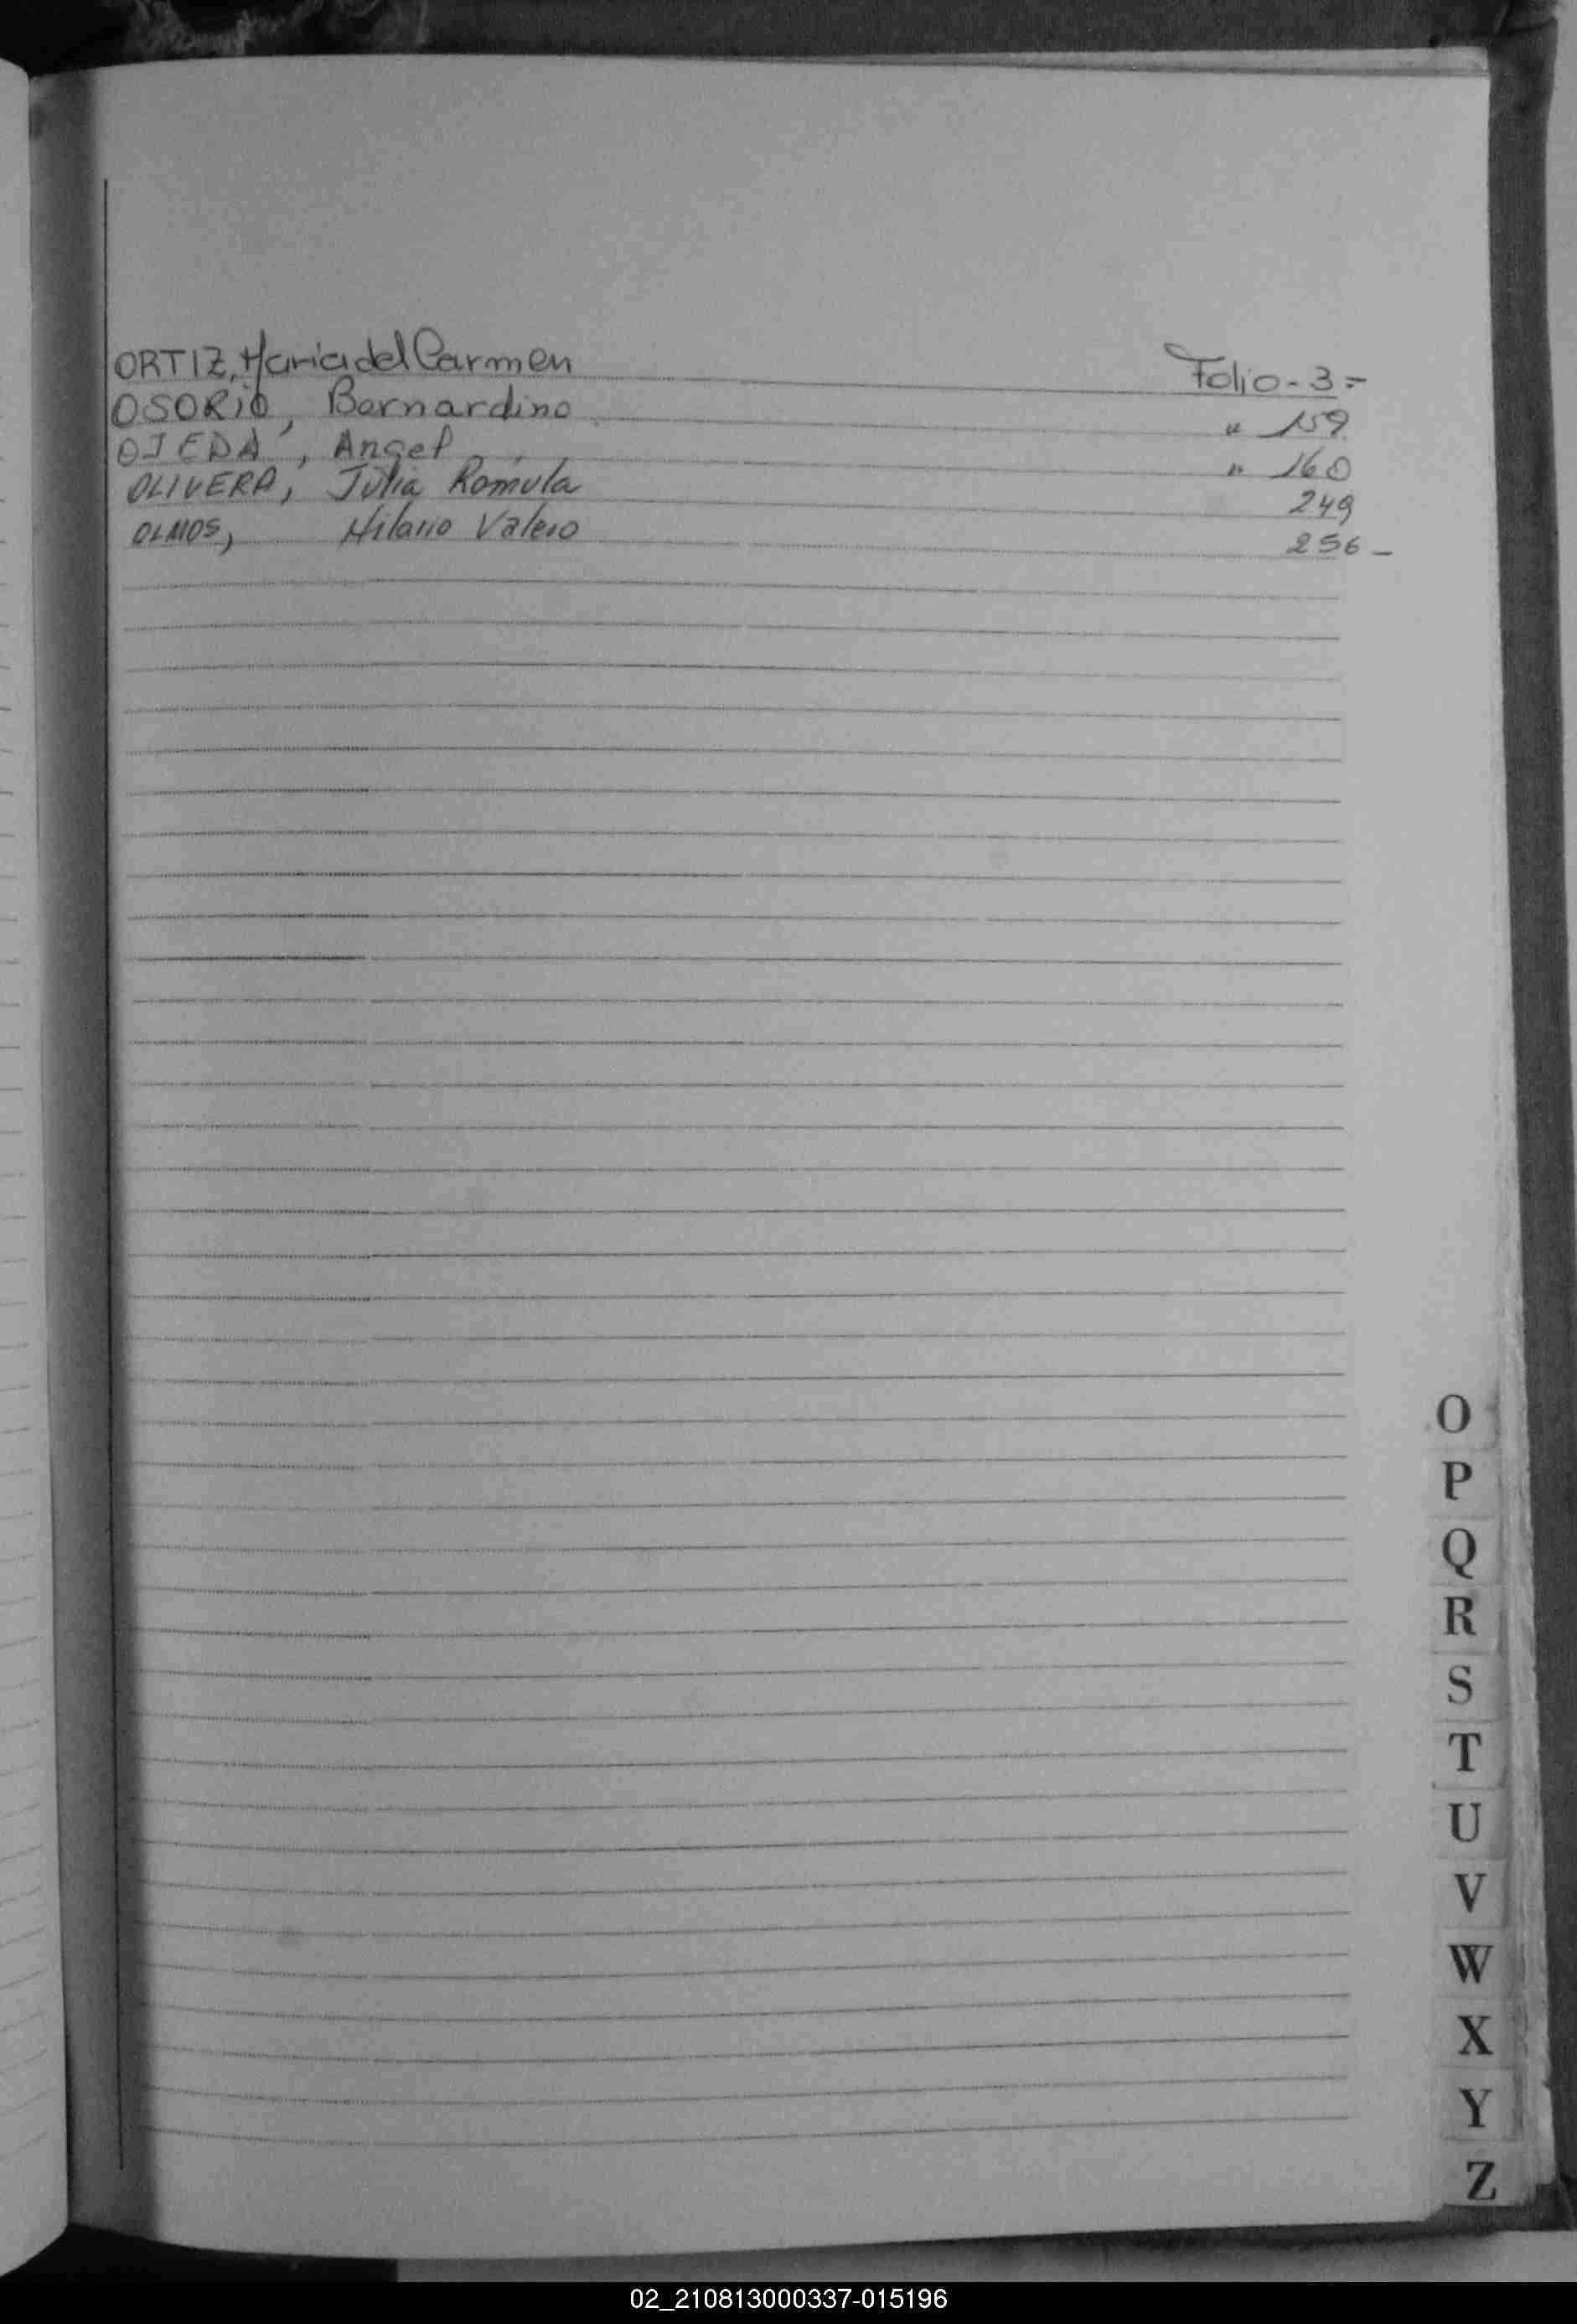 ORTIZ, Maria del Carmen Folio - 3 =
OSORIO, Bernardino " 159
OJEDA, Angel " 160
OLIVERA, Julia Romula 249
OLMOS, Hilario Valerio 256 -
O
P
Q
R
S
T
U
V
W
X
Y
Z
02_210813000337-015196